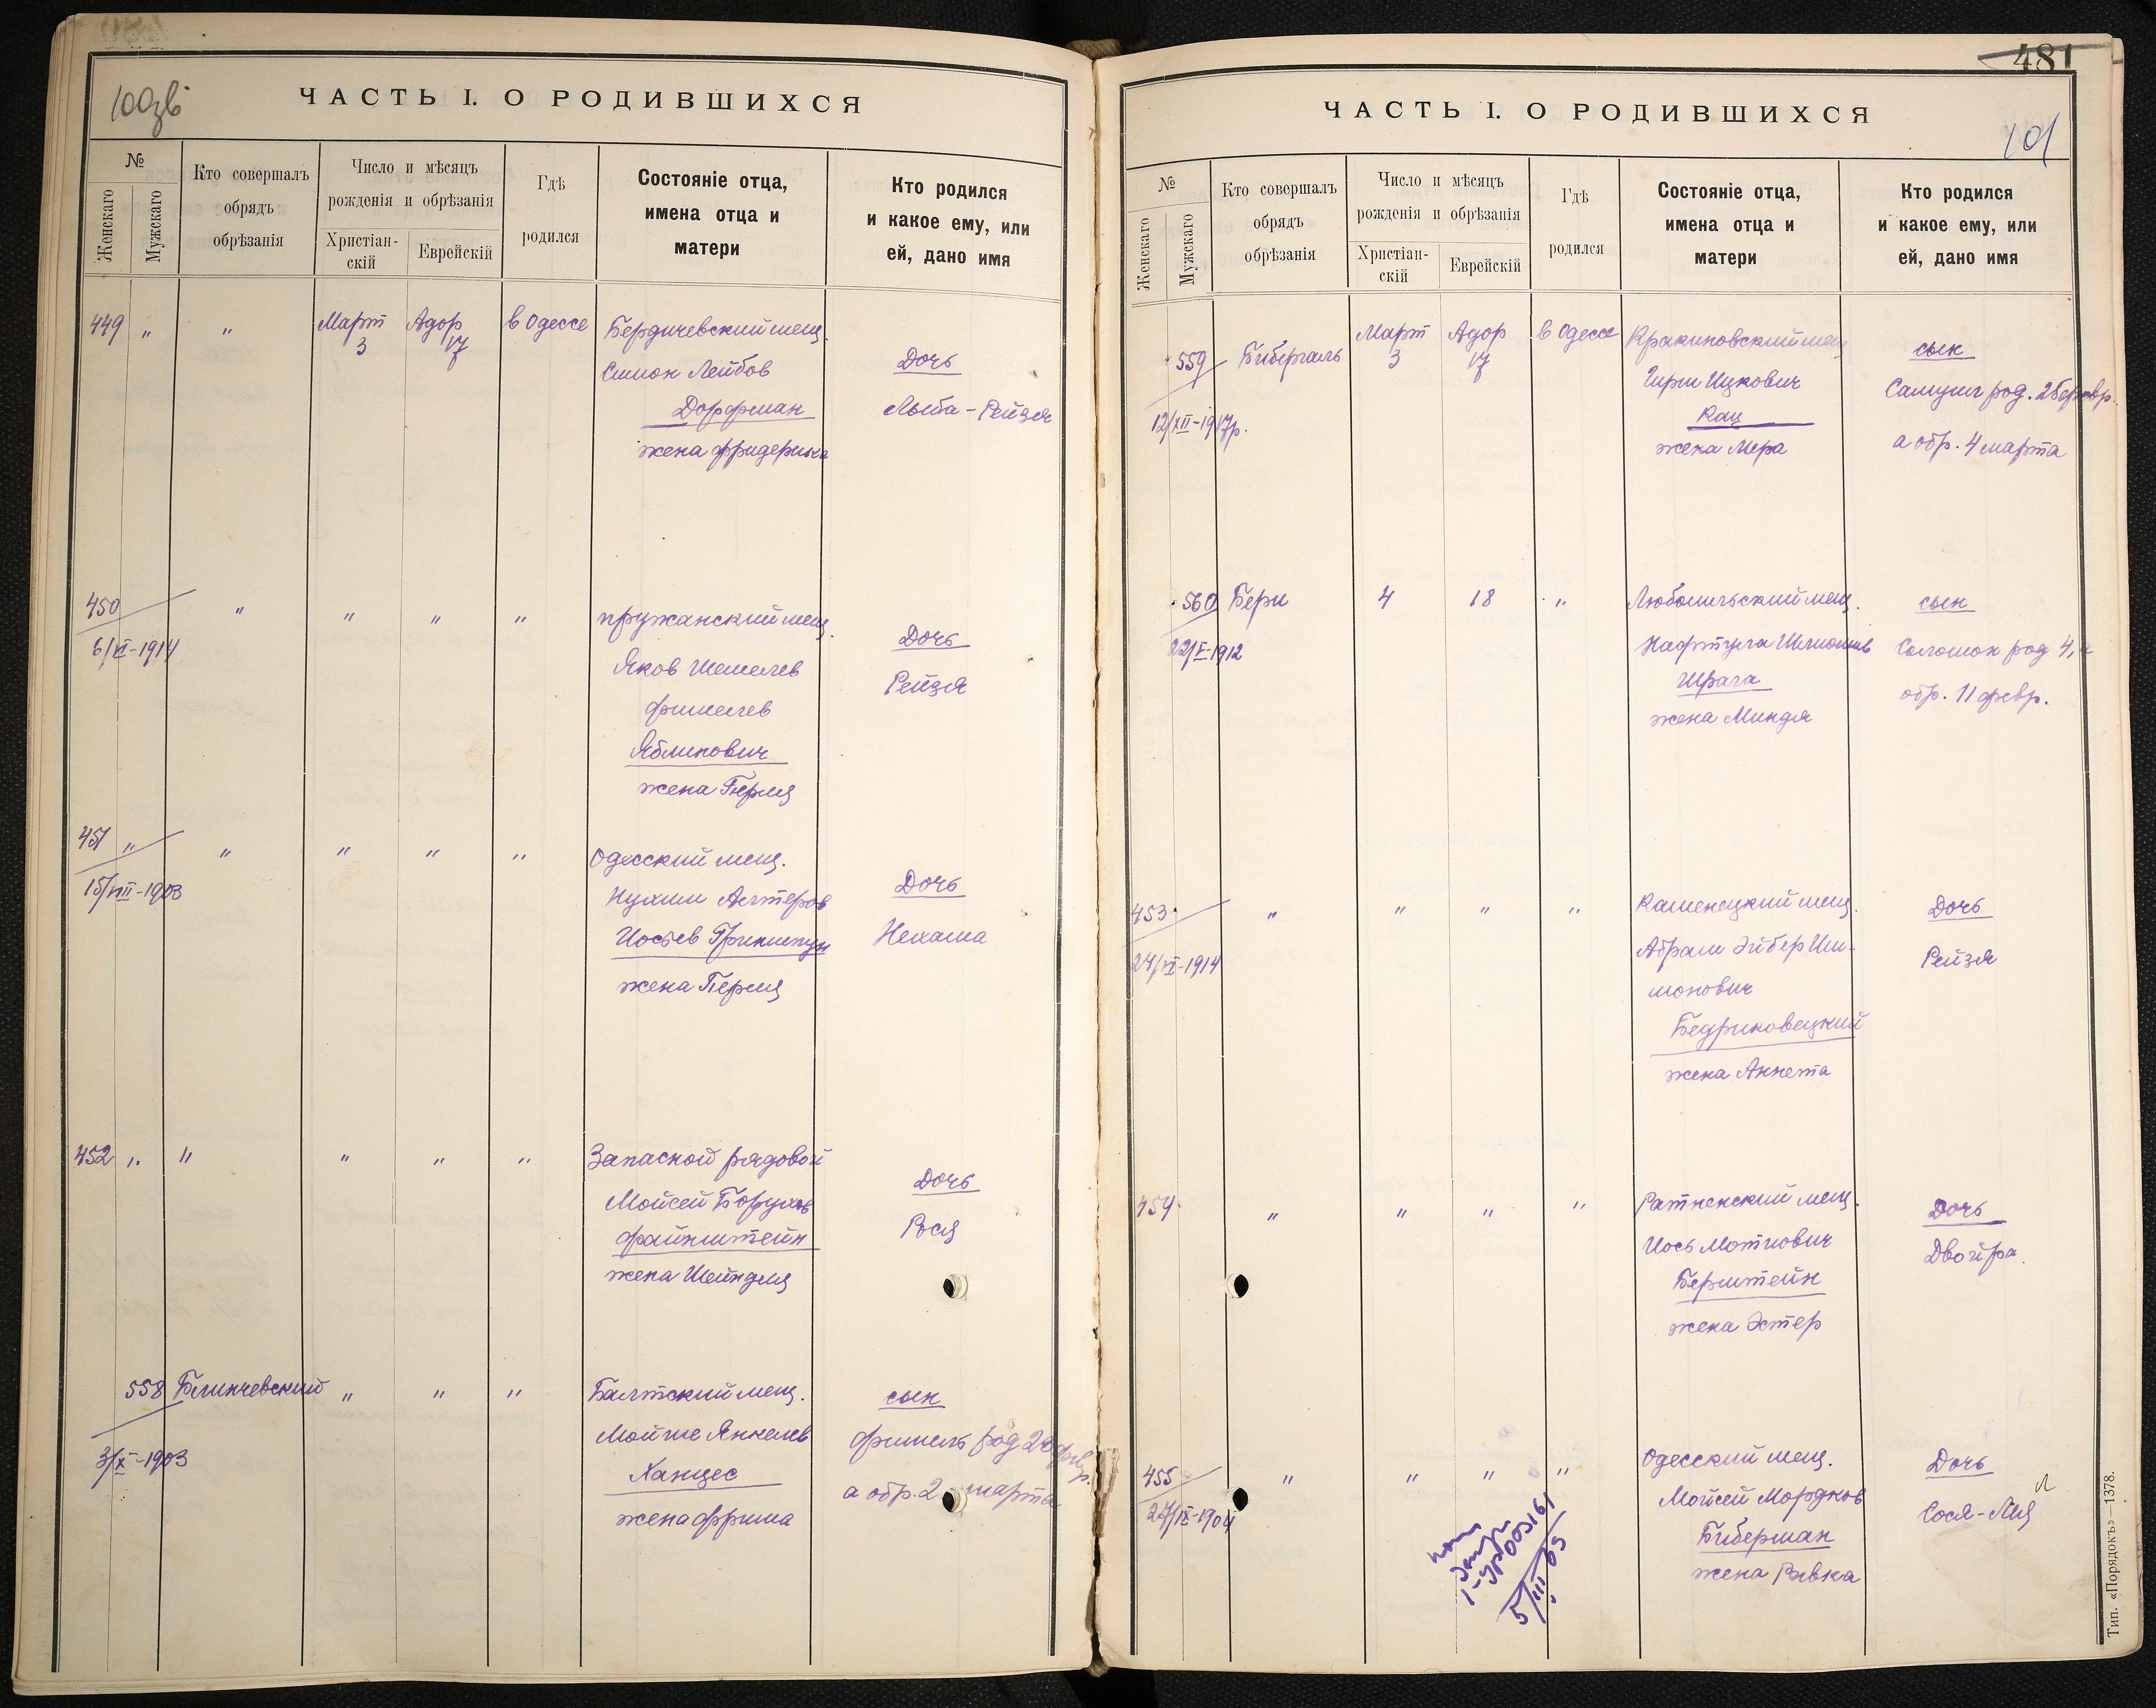 100зв
ЧАСТЬ I. О РОДИВШИХСЯ
№
Женскаго
Мужскаго
Кто совершалъ
обрядъ
обрѣзанія
Число и мѣсяцъ
рожденія и обрѣзанія
Христіан-
скій
Еврейскій
Гдѣ
родился
Состояніе отца,
имена отца и
матери
Кто родился
и какое ему, или
ей, дано имя
449 " " Март 3 Адор 17 в Одессе Бердичевский мещ.
Симон Лейбов
Дорфман
жена Фридерика
Дочь
Лыба-Рейзя
450 " " " " пружанский мещ.
6/XI-1914
Яков
Яблинович
жена
Дочь
Рейзя
451 " " " " " Одесский мещ.
15/VIII-1903
Нухим Алтеров
Иосьев Гриншпун
жена Перля
Дочь
Нехама
452 " " " " " Запасной рядовой
Мойсей Борухов
Файнштейн
жена Шейндля
Дочь
Рося
558 Блинчевский " " " Балтский мещ.
3/X-1903
Мойше Янкелев
Ханцес
жена Фрима
сын
Фишель род 24 февр.
а обр. 2 марта
481
101
ЧАСТЬ I. О РОДИВШИХСЯ
№
Женскаго
Мужскаго
Кто совершалъ
обрядъ
обрѣзанія
Число и мѣсяцъ
рожденія и обрѣзанія
Христіан-
скій
Еврейскій
Гдѣ
родился
Состояніе отца,
имена отца и
матери
Кто родился
и какое ему, или
ей, дано имя
559 Бибергаль Март 3 Адор 17 в Одессе Кракиновский мещ
12/XII-1917р.
Гирш Ицкович
Кац
жена Мера
сын
Самуил род. 25 февр.
а обр. 4 марта
560 Бери 4 18 " Любомльский мещ.
22/V-1912
Нафтула Шлиомов
Шрага
жена Миндя
сын
Соломон род 4, а
обр. 11 февр.
453 " " " " Каменецкий мещ.
24/VI-1914
Абрам Эйбер Ши-
монович
Бедриковецкий
жена Аннета
Дочь
Рейзя
454 " " " " Ратненский мещ.
Иось Моткович
Берштейн
жена Эстер
Дочь
Двойра
455 " " " " Одесский мещ.
27/IX-1904
Мойсей Мордков
Биберман
жена Ривка
Дочь
Сося-Лия
I-УР003161
5/III 03
Тип. «Порядокъ»—1378.